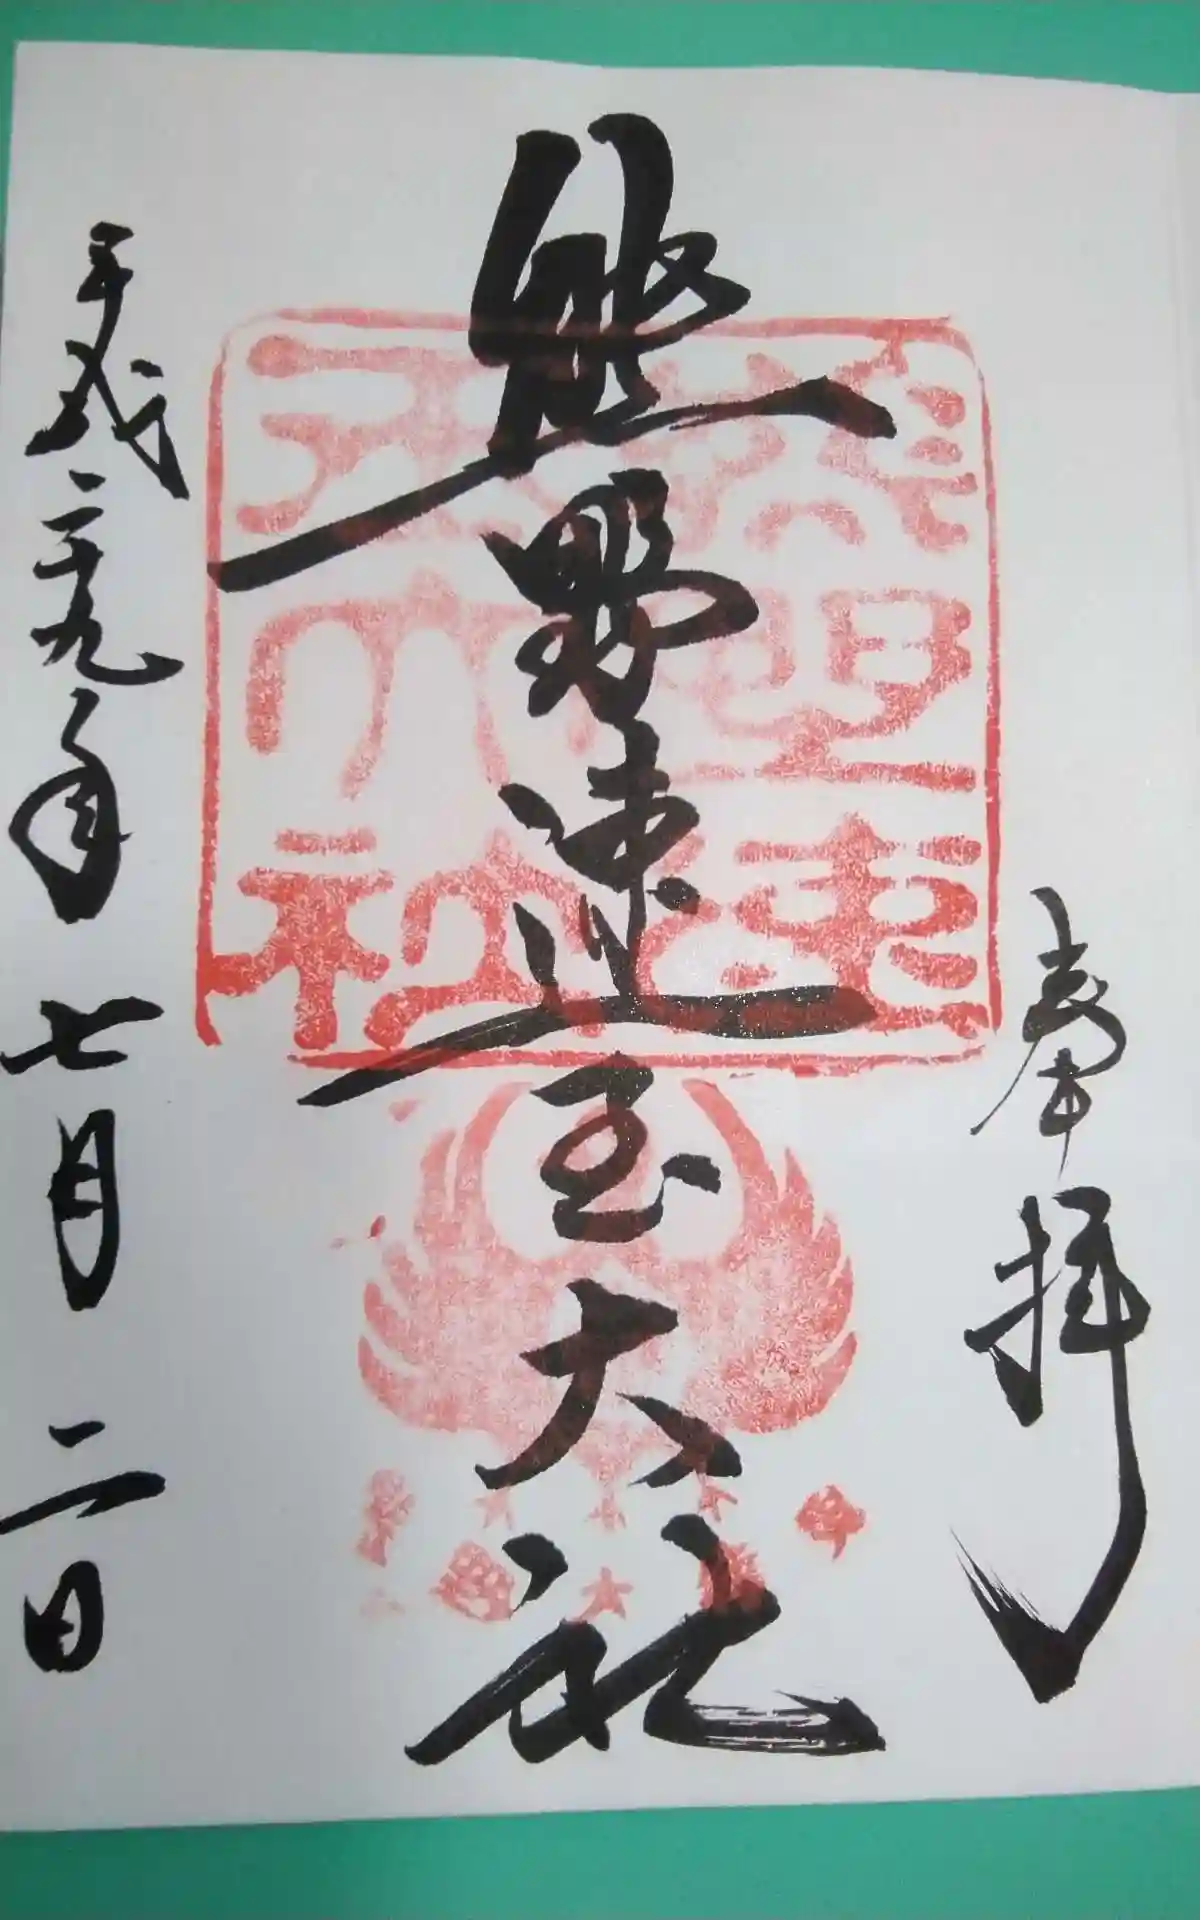 奉拝
熊野速玉大社
平成二十九年七月二日
熊野速玉大社